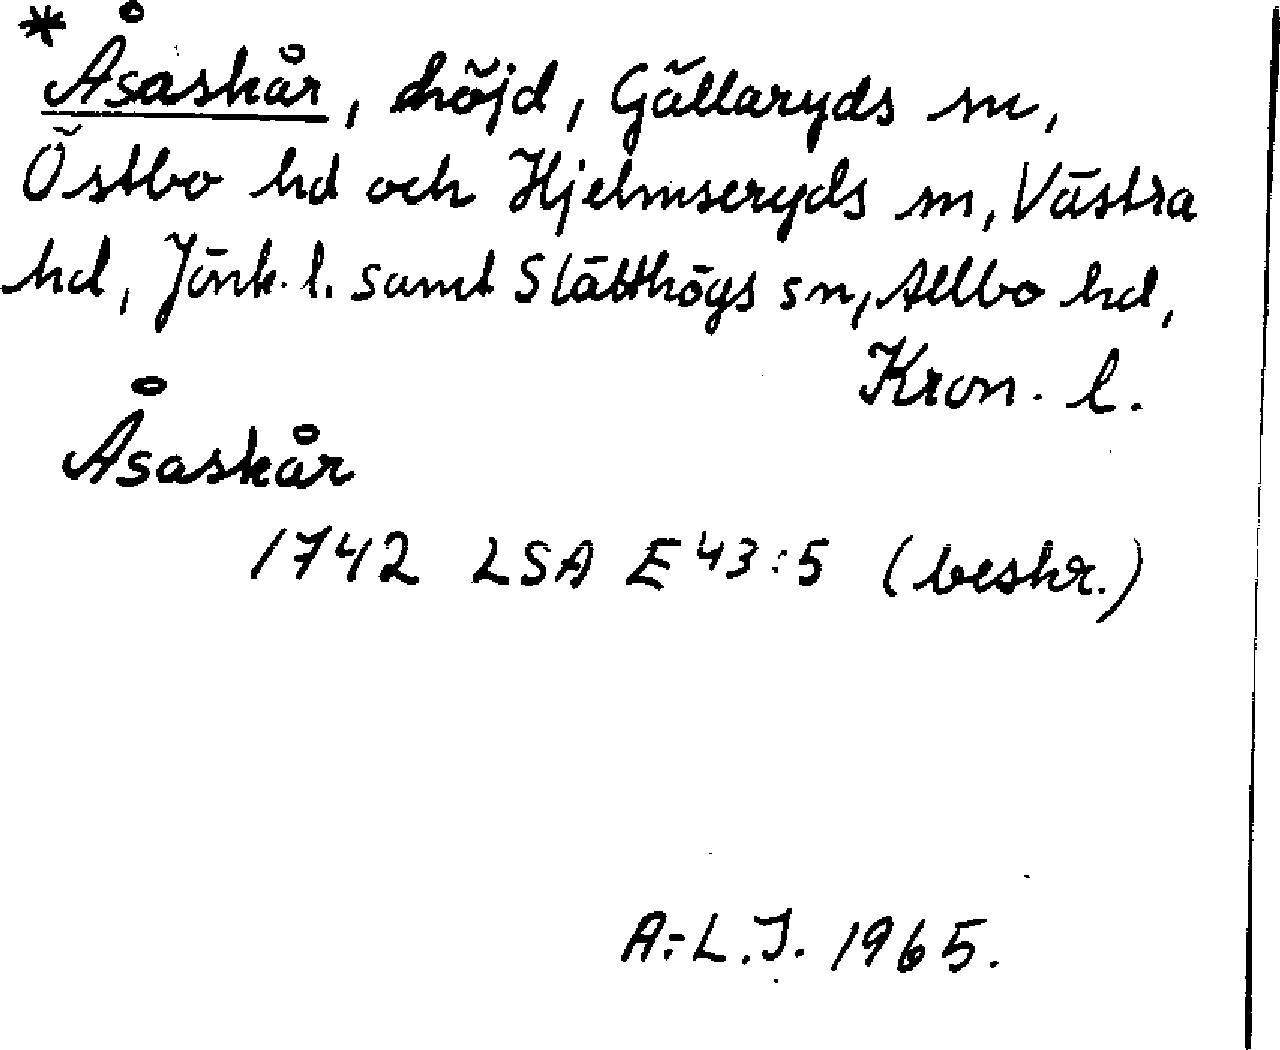 * Åsaskår, höjd, Gällaryds sn,
Östbo hd och Hjelmseryds sn, Västra
hd, Jönk. l. samt Slätthögs sn, Allbo hd,
Kron. l.
Åsaskår
1742 LSA E43:5 (beskr.)
A.-L.J. 1965.